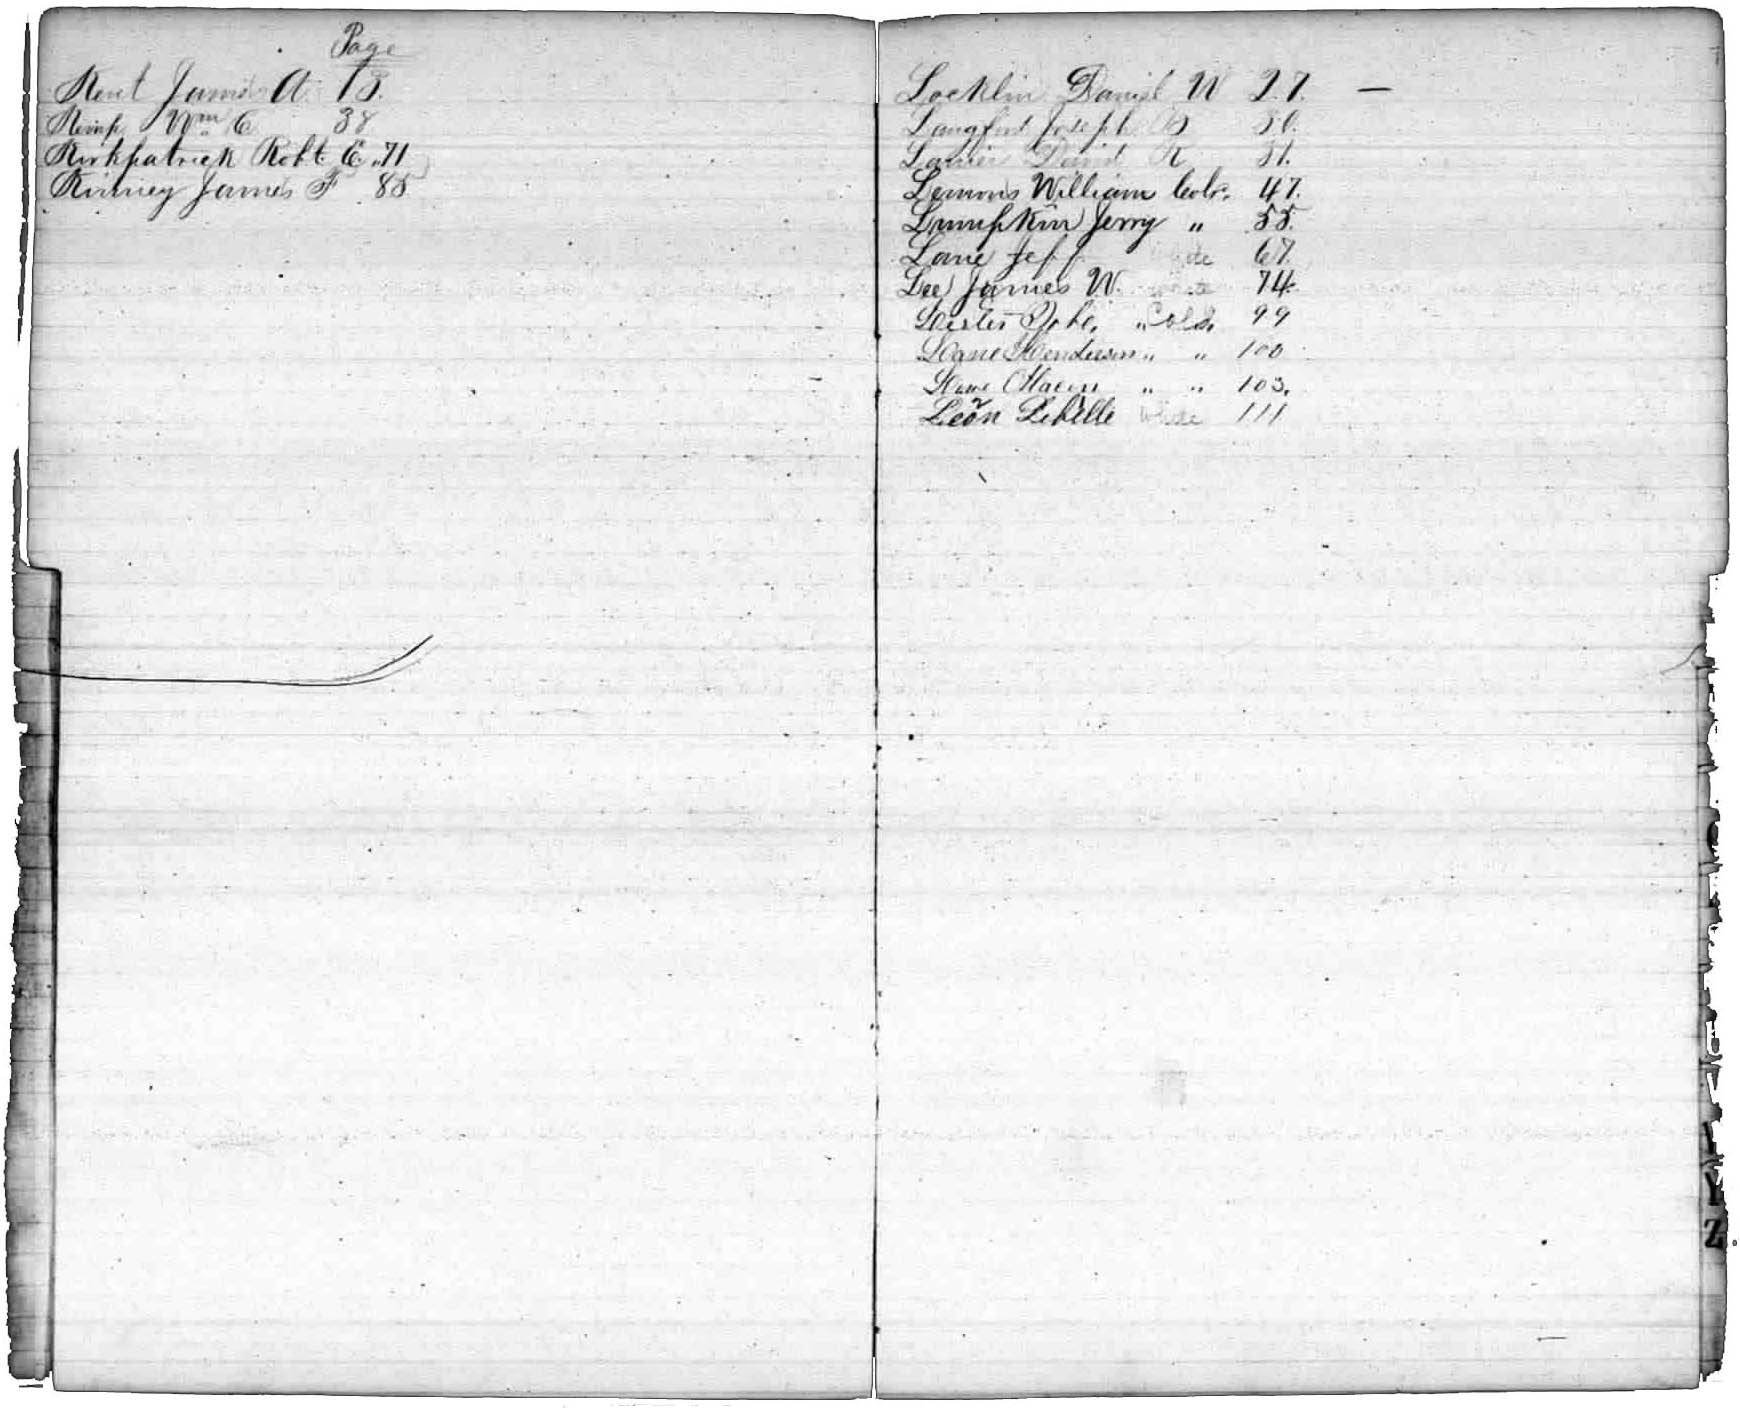 Page
Kent James A. 13.
Kemp Wm C 38
Kirkpatrick Robt. C. 71
Kinney James F 85
Locklin Daniel W 27. —
Langford Joseph B 30.
Lanier David R 31.
Lemons William Colr. 47.
Lumpkin Jerry " 55.
Lane Jeff White 67.
Lee James W. White 74.
Lester " Cold. 99
Lane Henderson " " 100
Lane Macon " " 103.
Leon White 111
Y
Z